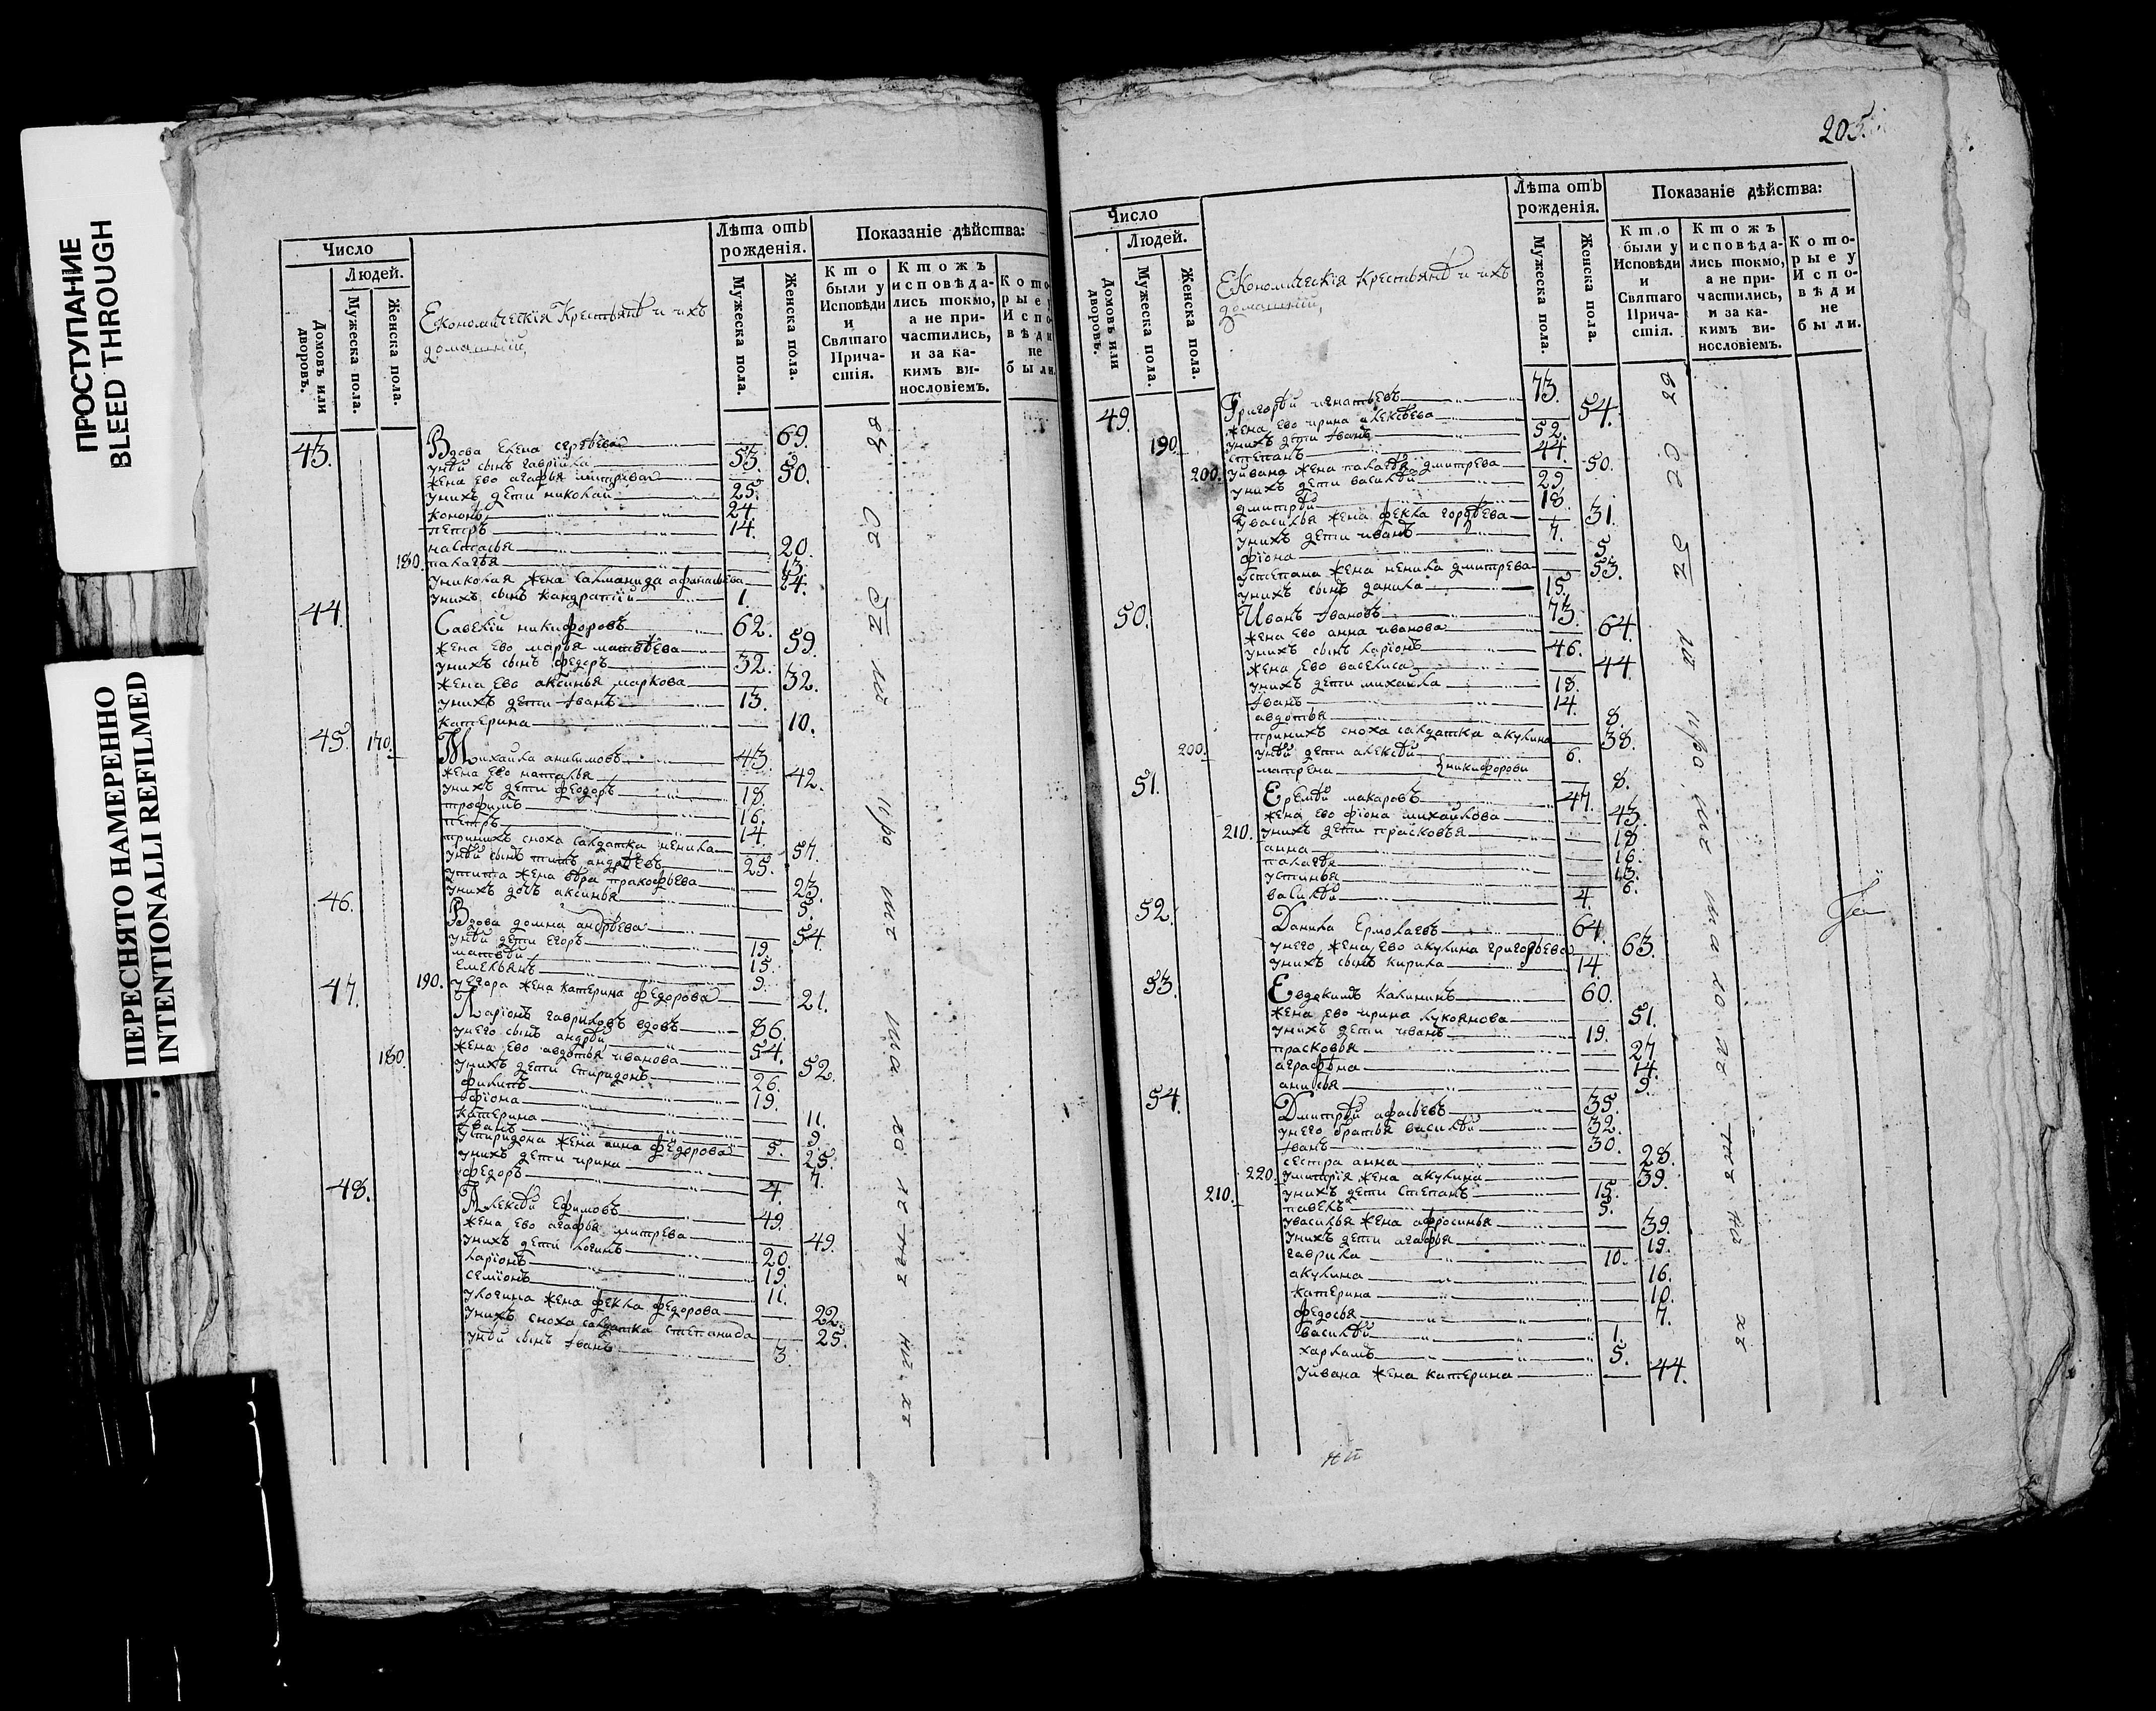 ПРОСТУПАНИЕ
BLEED THROUGH
ПЕРЕСНЯТО НАМЕРЕННО
INTENTIONALLI REFILMED
Число
Людей.
Домовъ или дворовъ.
Мужеска пола.
Женска пола.
Економическія Крестьянѣ и ихъ
домашніи,
Лѣта отъ
рожденія.
Мужеска пола.
Женска пола.
Показаніе дѣйства:
Кто
были у
Исповѣди
и
Святаго
Прича-
стія.
Ктожъ
исповѣда-
лись токмо,
а не при-
частились,
и за ка-
кимъ ви-
нословіемъ.
Кото-
рые у
Испо-
вѣди
не
были.
43. Вдова Елена сергѣева 69.
унѣй сынъ гаврійла 53.
жена ево агафья митрева 50.
унихъ дети николай 25.
кононъ 24.
петръ 14.
насталья 20.
180. палагѣя 13.
униколая жена салманида афанасьева 24.
унихъ сынъ кандратій 1.
44. Савелій никифоровъ 62.
жена ево марья матвѣева 59.
унихъ сынъ федоръ 32.
жена ево аксинья маркова 32.
унихъ дети іванъ 13.
катерина 10.
45. 170. Михайла анисимовъ 43.
жена ево наталья 42.
унихъ дети феодоръ 18.
трофимъ 16.
петръ 14.
принихъ сноха салдатка ненила 57.
унѣй сынъ титъ андрѣевъ 25.
утита жена пракофьева 23.
унихъ дочь аксинья 5.
46. Вдова домна андрѣева 54.
унѣй дети егоръ 19.
матвѣй 15.
емельянъ 9.
190. уегора жена катерина федорова 21.
47. Ларіонъ гавриловъ вдовъ 86.
унего сынъ андрѣй 54.
180. жена ево авдотья иванова 52.
унихъ дети спиридонъ 26.
филипъ 19.
фіона 11.
катерина 9.
іванъ 5.
успиридона жена анна федорова 25.
унихъ дети ирина 7.
федоръ 4.
48. Алексѣй Ефимовъ 49.
жена ево агафья митрева 49.
унихъ дети логинъ 20.
ларіонъ 19.
семіонъ 11.
улогина жена фекла федорова 22.
унихъ сноха салдатка степанида 25.
унѣй сынъ іванъ 3.
205.
Число
Людей.
Домовъ или дворовъ.
Мужеска пола.
Женска пола.
Економическія Крестьянѣ и ихъ
домашніи,
Лѣта отъ
рожденія.
Мужеска пола.
Женска пола.
Показаніе дѣйства:
Кто
были у
Исповѣди
и
Святаго
Прича-
стія.
Ктожъ
исповѣда-
лись токмо,
а не при-
частились,
и за ка-
кимъ ви-
нословіемъ.
Кото-
рые у
Испо-
вѣди
не
были.
49. Григорѣй игнатьевъ 73.
жена ево ирина алексѣева 54.
190. унихъ дети іванъ 52.
степанъ 44.
200. уйвана жена палагѣя дмитрева 50.
унихъ дети василѣй 29.
дмитрѣй 18.
увасилья жена фекла горѣева 31.
унихъ дети иванъ 7.
фіона 5.
устепана жена ненила дмитрева 53.
унихъ сынъ данила 15.
50. Иванъ івановъ 73.
жена ево анна иванова 64.
унихъ сынъ ларіонъ 46.
жена ево василиса 44.
унихъ дети михайла 18.
іванъ 14.
авдотья 8.
принихъ сноха салдатка акулина 38.
200. унѣй дети алексѣй 6.
матрена никифорови 8.
51. Еремѣй макаровъ 47.
жена ево фіона михайлова 43.
210. унихъ дети прасковья 18.
анна 16.
палагѣя 13.
устинья 6.
василѣй 4.
52. Данила Ермолаевъ 64.
унего жена ево акулина григорьева 63.
унихъ сынъ кирила 14.
53. Евдокимъ калининъ 60.
жена ево ирина лукоянова 51.
унихъ дети иванъ 19.
прасковья 27
аграфѣна 14.
анисья 9.
54. Дмитрѣй афасьевъ 35.
унего братья василѣй 32.
іванъ 30.
сестра анна 28.
220. умитрія жена акулина 39.
210. унихъ дети степанъ 15.
павелъ 5.
увасилья жена афросинья 39.
унихъ дети агафья 19.
гаврила 10.
акулина 16.
катерина 10.
федосья 7.
василѣй 1.
харламъ 5.
уйвана жена катерина 44.